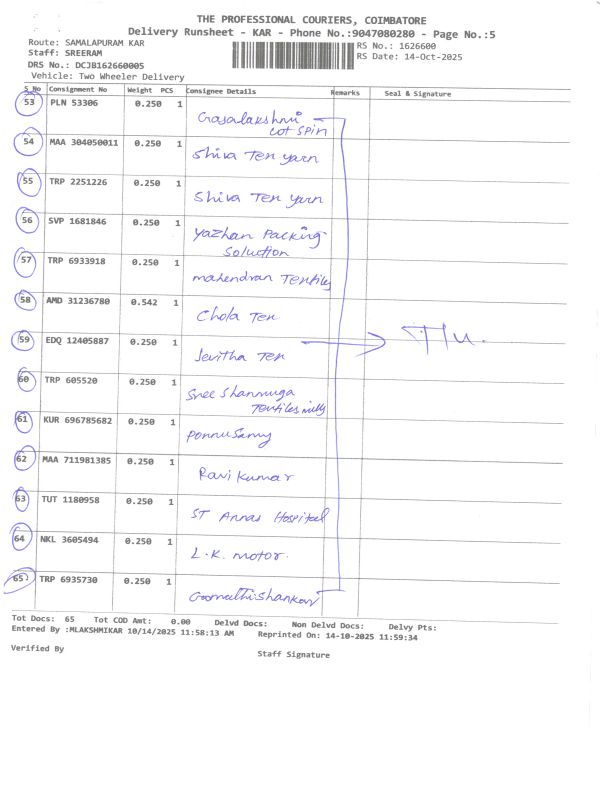 THE PROFESSIONAL COURIERS, COIMBATORE
Delivery Runsheet - KAR - Phone No.:9047080280 - Page No.:5
Route: SAMALAPURAM KAR
RS No.: 1626600
Staff: SREERAM
RS Date: 14-Oct-2025
DRS No.: DCJB162660005
Vehicle: Two Wheeler Delivery
S No Consignment No Weight PCS Consignee Details Remarks Seal & Signature
53 PLN 53306 0.250 1
Gajalakshmi
Cot Spin
54 MAA 304050011 0.250 1
Shiva Tex yarn
55 TRP 2251226 0.250 1
Shiva Tex yarn
56 SVP 1681846 0.250 1
Yazhan Packing
Solution
57 TRP 6933918 0.250 1
mahendran Textiles
58 AMD 31236780 0.542 1
Chola Tex
59 EDQ 12405887 0.250 1
Jevitha Tex
60 TRP 605520 0.250 1
Sree Shanmuga
Textiles mills
61 KUR 696785682 0.250 1
Ponnusamy
62 MAA 711981385 0.250 1
Ravi Kumar
63 TUT 1180958 0.250 1
ST Annas Hospital
64 NKL 3605494 0.250 1
L.K. motor.
65 TRP 6935730 0.250 1
Goomathishankar
Tot Docs: 65 Tot COD Amt: 0.00 Delvd Docs: Non Delvd Docs: Delvy Pts:
Entered By :MLAKSHMIKAR 10/14/2025 11:58:13 AM Reprinted On: 14-10-2025 11:59:34
Verified By
Staff Signature